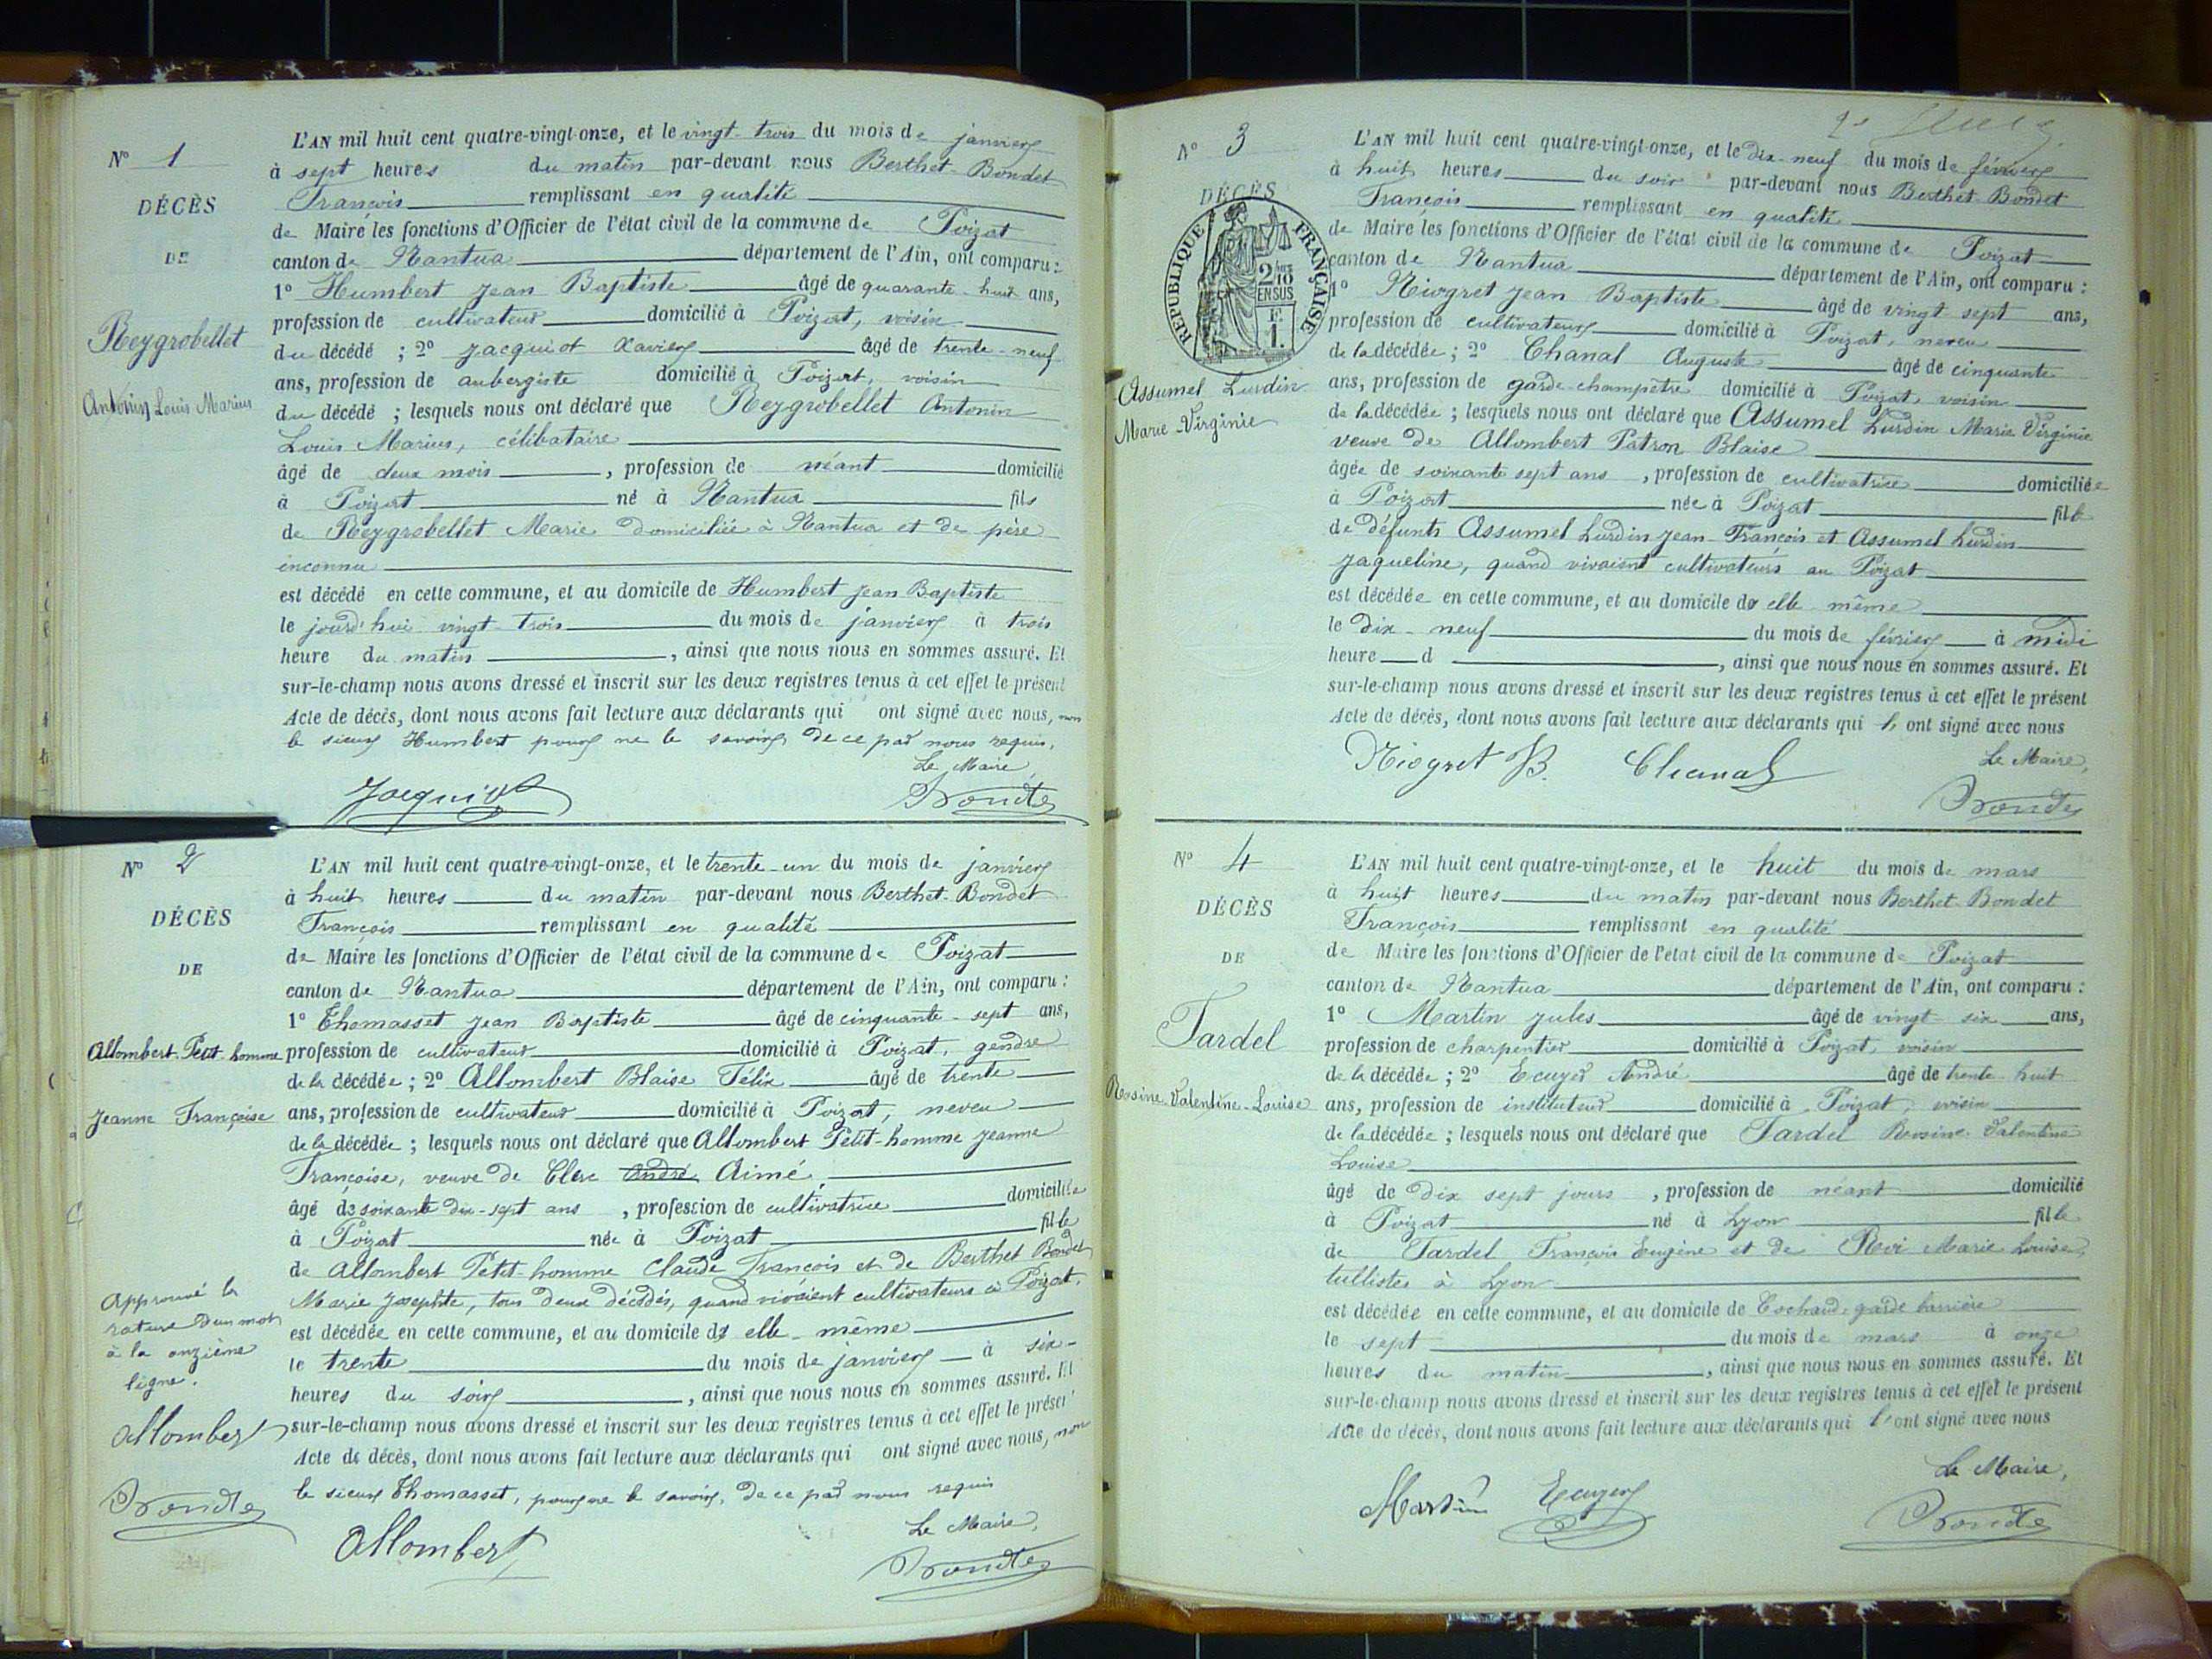 N° 1
DÉCÈS
DE
Reygrobellet
Antonin Louis Marius
L'AN mil huit cent quatre-vingt-onze, et le vingt-trois du mois de janvier
à sept heures du matin par-devant nous Berthet-Bondet
François remplissant en qualité
de Maire les fonctions d'Officier de l'état civil de la commune de Poizat
canton de Nantua département de l'Ain, ont comparu :
1° Humbert Jean Baptiste âgé de quarante-huit ans,
profession de cultivateur domicilié à Poizat, voisin
du décédé ; 2° Jacquiot Xavier âgé de trente-neuf
ans, profession de aubergiste domicilié à Poizat, voisin
du décédé ; lesquels nous ont déclaré que Reygrobellet Antonin
Louis Marius, célibataire
âgé de deux mois, profession de néant domicilié
à Poizat né à Nantua fils
de Reygrobellet Marie domiciliée à Nantua et de père
inconnu
est décédé en cette commune, et au domicile de Humbert Jean Baptiste
le jourd'hui vingt-trois du mois de janvier à trois
heure du matin, ainsi que nous nous en sommes assuré. Et
sur-le-champ nous avons dressé et inscrit sur les deux registres tenus à cet effet le présent
Acte de décès, dont nous avons fait lecture aux déclarants qui ont signé avec nous, non
le sieur Humbert pour ne le savoir, de ce par nous requis.
Le Maire,
Jacquiot Bondet
N° 2
DÉCÈS
DE
Allombert-Petit-homme
Jeanne Françoise
L'AN mil huit cent quatre-vingt-onze, et le trente-un du mois de janvier
à huit heures du matin par-devant nous Berthet-Bondet
François remplissant en qualité
de Maire les fonctions d'Officier de l'état civil de la commune de Poizat
canton de Nantua département de l'Ain, ont comparu :
1° Thomasset Jean Baptiste âgé de cinquante-sept ans,
profession de cultivateur domicilié à Poizat, gendre
de la décédée ; 2° Allombert Blaise Félix âgé de trente
ans, profession de cultivateur domicilié à Poizat, neveu
de la décédée ; lesquels nous ont déclaré que Allombert Petit-homme Jeanne
Françoise, veuve de Clerc André Aimé,
âgé de soixante dix-sept ans, profession de cultivatrice domiciliée
à Poizat née à Poizat fille
de Allombert Petit-homme Claude François et de Berthet Bondet
Marie Josephte, tous deux décédés, quand vivaient cultivateurs à Poizat.
est décédée en cette commune, et au domicile d' elle-même
le trente du mois de janvier à six
heures du soir, ainsi que nous nous en sommes assuré. Et
sur-le-champ nous avons dressé et inscrit sur les deux registres tenus à cet effet le présent
Acte de décès, dont nous avons fait lecture aux déclarants qui ont signé avec nous, non
le sieur Thomasset, pour ne le savoir, de ce par nous requis
Le Maire,
Allombert Bondet
Approuvé la
rature d'un mot
à la onzième
ligne.
Allombert
Bondet
N° 3
DÉCÈS
RÉPUBLIQUE FRANÇAISE
2/10
EN SUS
F.
1.
Assumel Lurdin
Marie-Virginie
L'AN mil huit cent quatre-vingt-onze, et le dix-neuf du mois de février
à huit heures du soir par-devant nous Berthet-Bondet
François remplissant en qualité
de Maire les fonctions d'Officier de l'état civil de la commune de Poizat
canton de Nantua département de l'Ain, ont comparu :
1° Niogret Jean Baptiste âgé de vingt sept ans,
profession de cultivateur domicilié à Poizat, neveu
de la décédée ; 2° Chanal Auguste âgé de cinquante
ans, profession de garde-champêtre domicilié à Poizat, voisin
de la décédée ; lesquels nous ont déclaré que Assumel Lurdin Marie Virginie
veuve de Allombert Patron Blaise
âgée de soixante sept ans, profession de cultivatrice domiciliée
à Poizat née à Poizat fille
de défunts Assumel Lurdin Jean-François et Assumel Lurdin
Jaqueline, quand vivaient cultivateurs au Poizat
est décédée en cette commune, et au domicile d' elle-même
le dix-neuf du mois de février à midi
heure d , ainsi que nous nous en sommes assuré. Et
sur-le-champ nous avons dressé et inscrit sur les deux registres tenus à cet effet le présent
Acte de décès, dont nous avons fait lecture aux déclarants qui l'ont signé avec nous
Le Maire,
Niogret JB. Chanal Bondet
N° 4
DÉCÈS
DE
Tardel
Rosine-Valentine-Louise
L'AN mil huit cent quatre-vingt-onze, et le huit du mois de mars
à huit heures du matin par-devant nous Berthet-Bondet
François remplissant en qualité
de Maire les fonctions d'Officier de l'état civil de la commune de Poizat
canton de Nantua département de l'Ain, ont comparu :
1° Martin Jules âgé de vingt-six ans,
profession de charpentier domicilié à Poizat, voisin
de la décédée ; 2° Ecuyer André âgé de trente-huit
ans, profession de instituteur domicilié à Poizat, voisin
de la décédée ; lesquels nous ont déclaré que Tardel Rosine Valentine
Louise
âgé de dix sept jours, profession de néant domicilié
à Poizat né à Lyon fille
de Tardel François Eugène et de Revi Marie Louise,
tullistes à Lyon
est décédée en cette commune, et au domicile de Cochard, garde barrière
le sept du mois de mars à onze
heures du matin, ainsi que nous nous en sommes assuré. Et
sur-le-champ nous avons dressé et inscrit sur les deux registres tenus à cet effet le présent
Acte de décès, dont nous avons fait lecture aux déclarants qui l'ont signé avec nous
Le Maire,
Martin Ecuyer Bondet